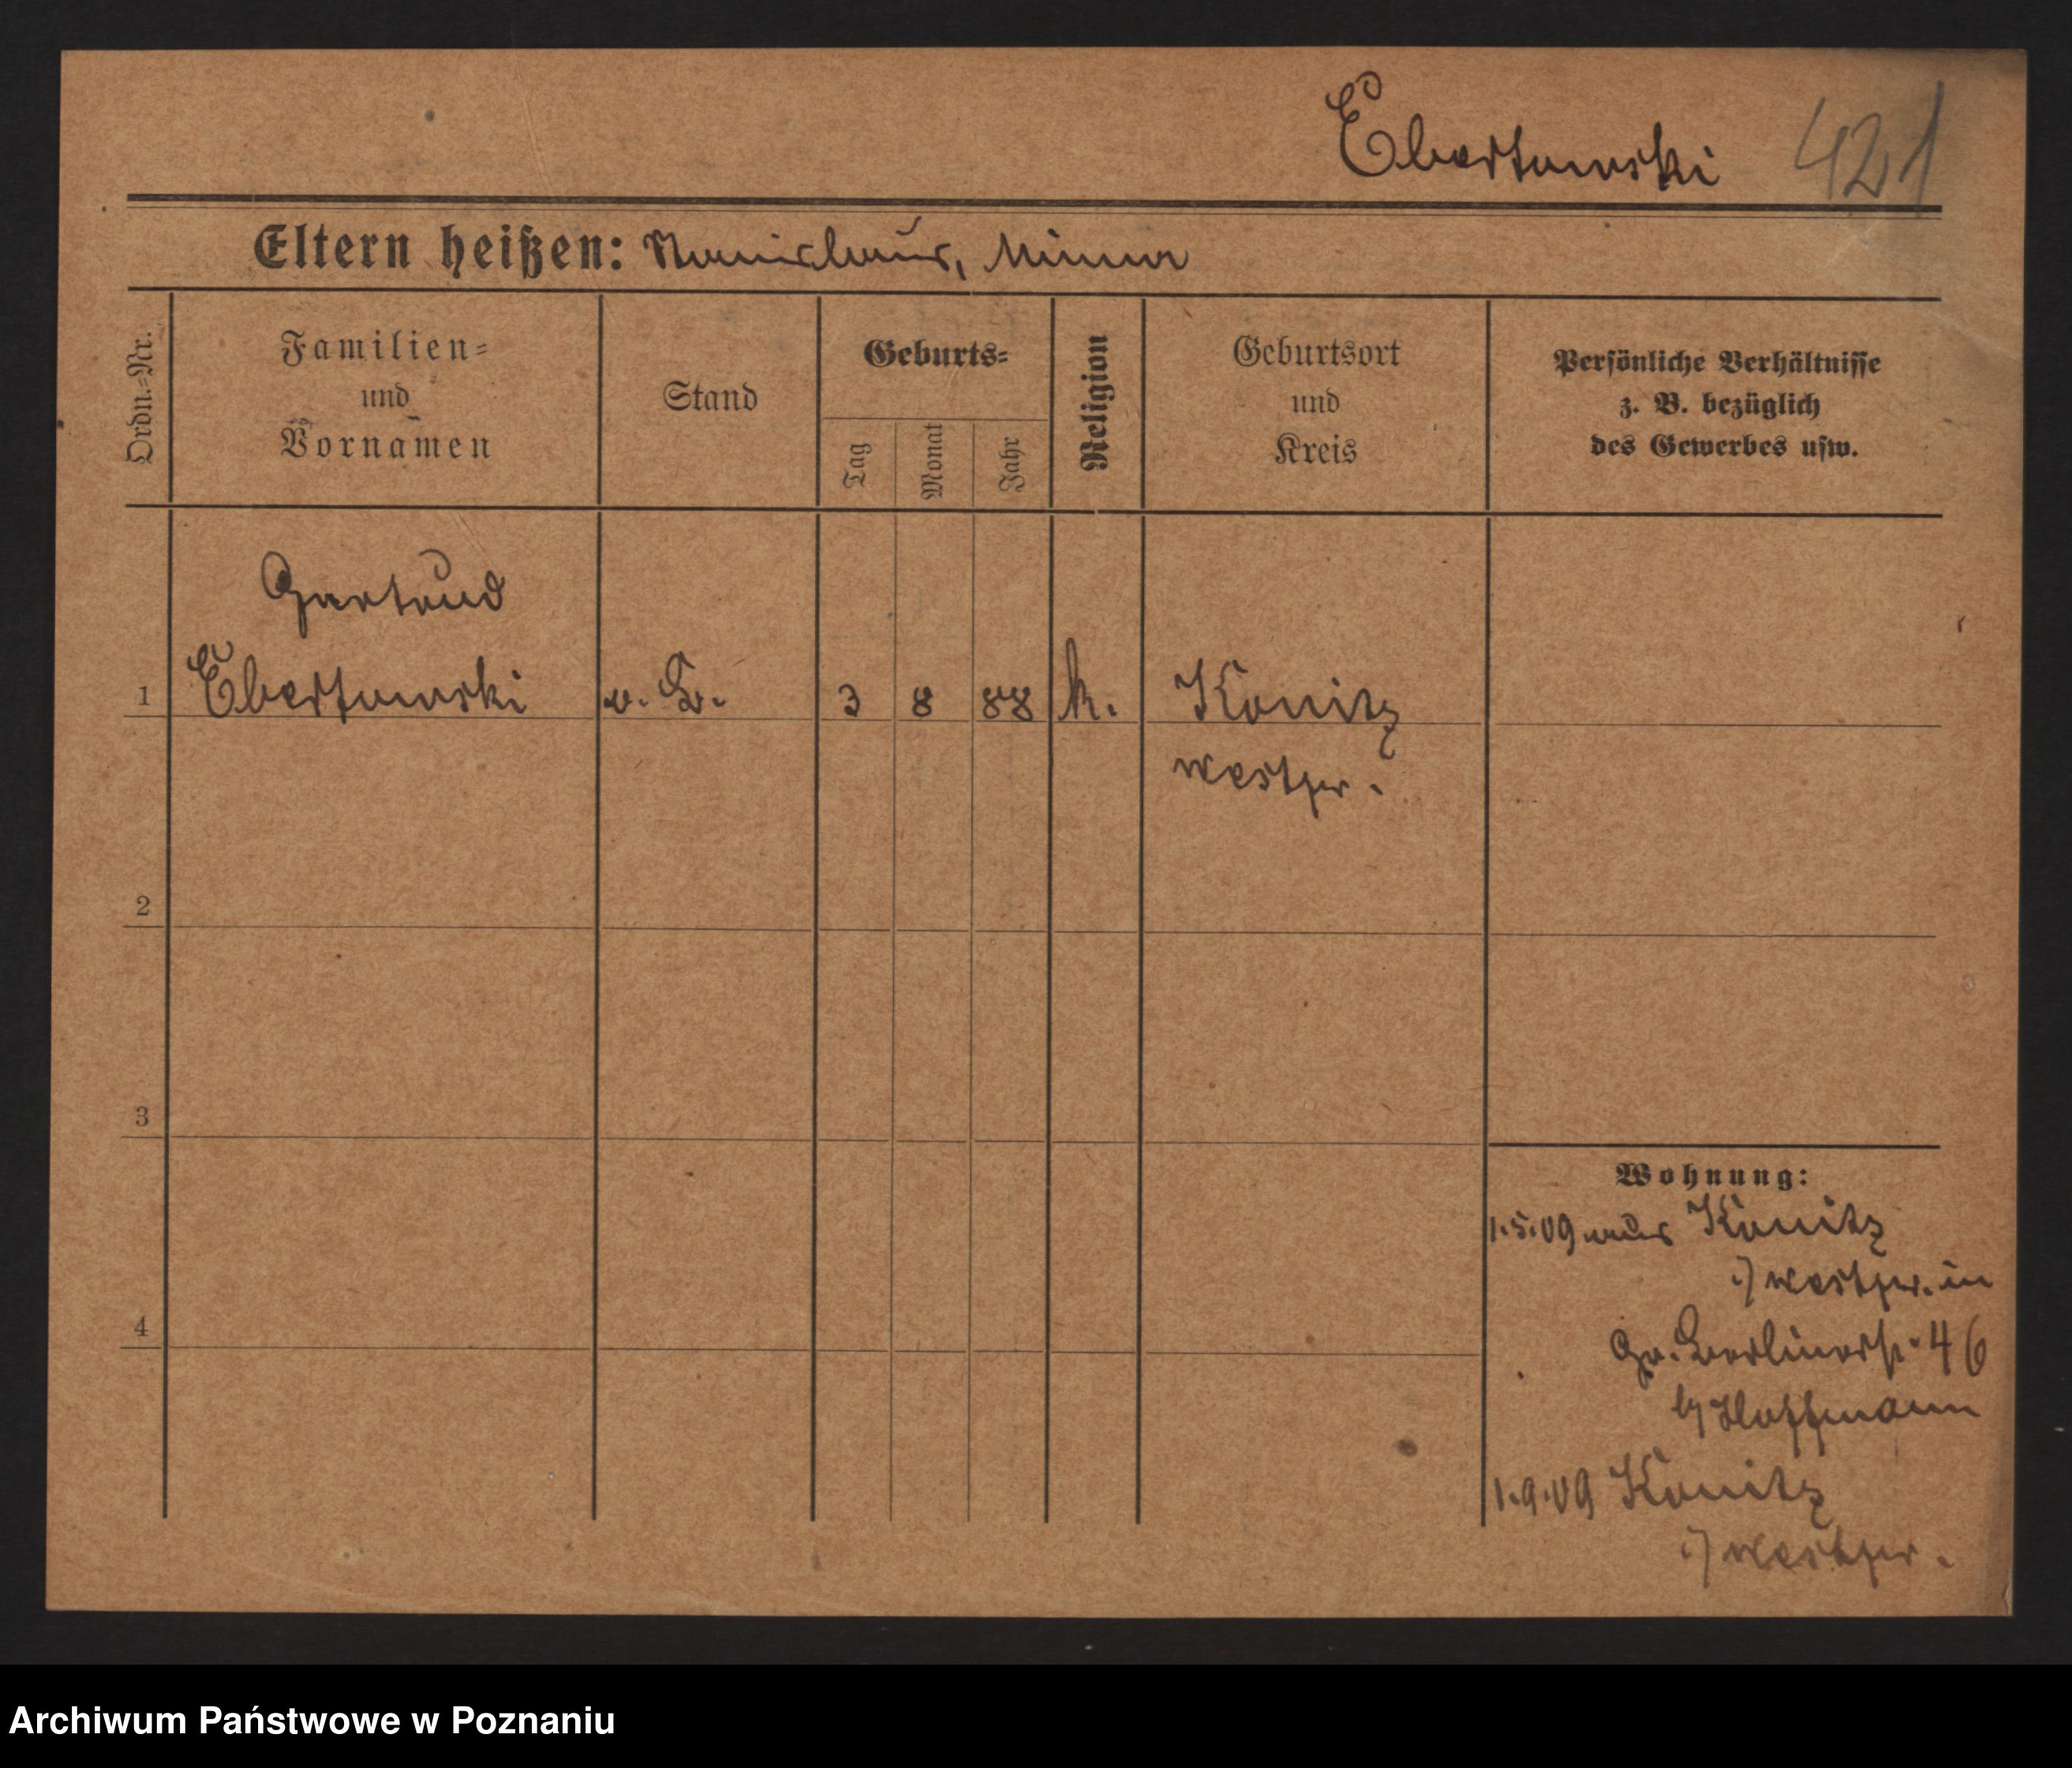 Ebertowski 421
Eltern heißen: Stanislaus, Minna
Ordn.-Nr.
Familien-
und
Vornamen
Stand
Geburts-
Tag
Monat
Jahr
Religion
Geburtsort
und
Kreis
Persönliche Verhältnisse
z. B. bezüglich
des Gewerbes usw.
Gertrud
1 Ebertowski o. B. 3 8 88 k. Konitz
Westpr.
2
3
4
Wohnung:
1.5.09 aus Konitz
Westpr. in
Gr. Berlinerstr. 46
b/ Hoffmann
1.9.09 Konitz
Westpr.
Archiwum Państwowe w Poznaniu